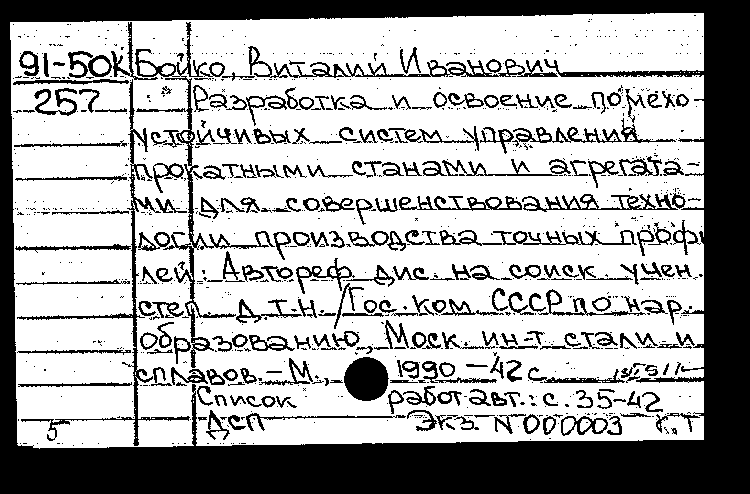 91-50К Бойко, Виталий Иванович
257 Разработка и освоение помехо-
устойчивых систем управления
прокатными станами и агрегата-
ми для совершенствования техно-
логии производства точных профи
лей: Автореф. дис. на соиск. учен.
степ. д.т.н. /Гос. ком. СССР по нар.
образованию, Моск. ин-т стали и
сплавов. - М., 1990 - 42 с.
Список работ авт.: с. 35-42
5 ДСП Экз. N 000003